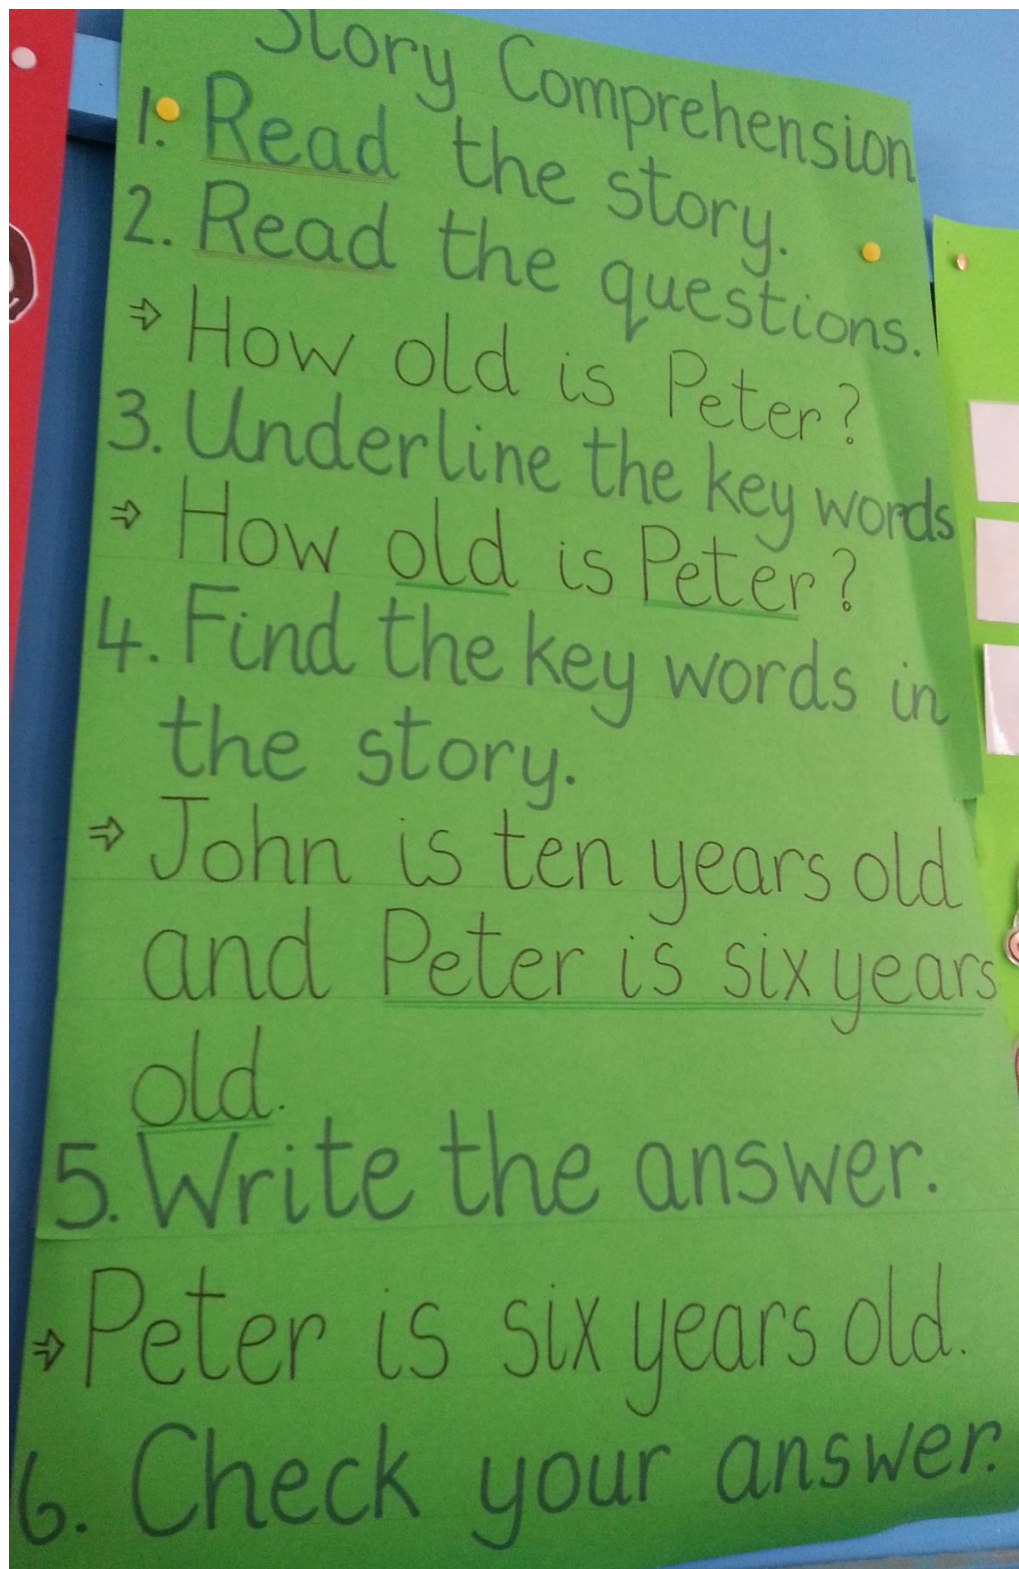 Story Comprehension
1. Read the story.
2. Read the questions.
⇒ How old is Peter?
3. Underline the key words
⇒ How old is Peter?
4. Find the key words in
the story.
⇒ John is ten years old
and Peter is six years
old.
5. Write the answer.
⇒ Peter is six years old.
6. Check your answer.